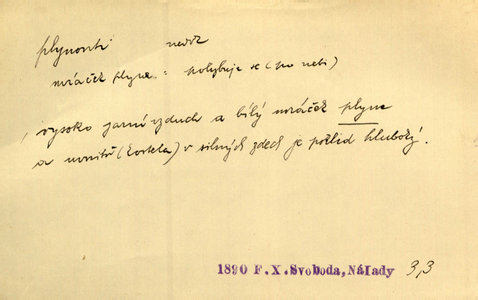 plynouti nedok
mráček plyne = pohybuje se (po nebi)
vysoko jarní vzduch a bílý mráček plyne
a uvnitř (kostela) v silných zdech je pořád hluboký.
1890 F. X. Svoboda, Nálady 3,3